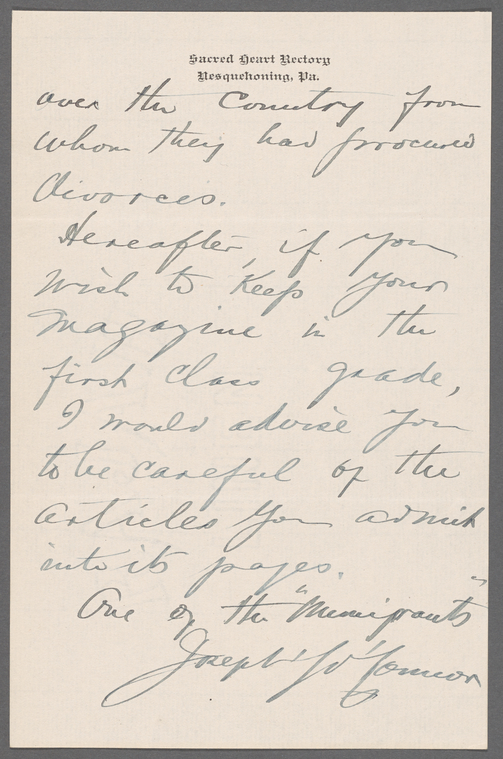 Sacred Heart Rectory
Nesquehoning, Pa.
over the Country from
whom they had procured
divorces.
Hereafter, if you
wish to keep your
magazine in the
first class grade,
I would advise you
to be careful of the
articles you admit
into its pages.
One of the "Immigrants"
Joseph J. O'Connor